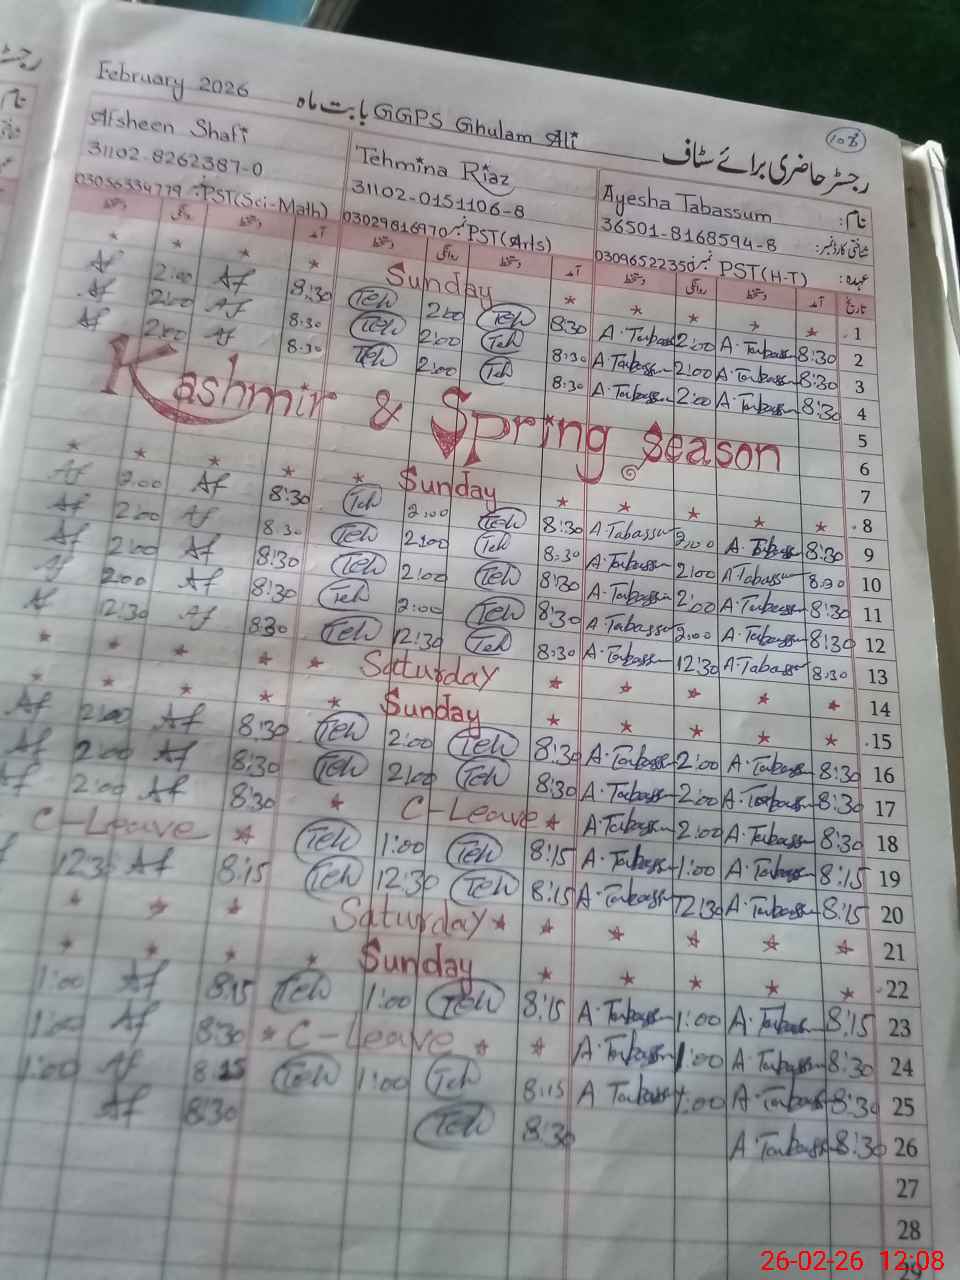 108
February 2026 بابت ماہ GGPS Ghulam Ali رجسٹر حاضری برائے سٹاف
Afsheen Shafi Tehmina Riaz Ayesha Tabassum نام:
31102-8262387-0 31102-0151106-8 36501-8168594-8 شناختی کارڈ نمبر:
03056334779 نمبر PST(Sci-Math) 03029816970 نمبر PST(Arts) 03096522350 نمبر PST(H-T) عہدہ:
دستخط روانگی دستخط آمد دستخط روانگی دستخط آمد دستخط روانگی دستخط آمد تاریخ
* * * * Sunday * * * * * 1
Af 2:00 Af 8:30 Teh 2:00 Teh 8:30 A.Tabassum 2:00 A.Tabassum 8:30 2
Af 2:00 Af 8:30 Teh 2:00 Teh 8:30 A.Tabassum 2:00 A.Tabassum 8:30 3
Af 2:00 Af 8:30 Teh 2:00 Teh 8:30 A.Tabassum 2:00 A.Tabassum 8:30 4
5
Kashmir & Spring season 6
7
* * * * * Sunday * * * * * 8
Af 2:00 Af 8:30 Teh 2:00 Teh 8:30 A.Tabassum 2:00 A.Tabassum 8:30 9
Af 2:00 Af 8:30 Teh 2:00 Teh 8:30 A.Tabassum 2:00 A.Tabassum 8:30 10
Af 2:00 Af 8:30 Teh 2:00 Teh 8:30 A.Tabassum 2:00 A.Tabassum 8:30 11
Af 2:00 Af 8:30 Teh 2:00 Teh 8:30 A.Tabassum 2:00 A.Tabassum 8:30 12
Af 12:30 Af 8:30 Teh 12:30 Teh 8:30 A.Tabassum 12:30 A.Tabassum 8:30 13
* * * * * Saturday * * * * * 14
* * * * * Sunday * * * * * 15
Af 2:00 Af 8:30 Teh 2:00 Teh 8:30 A.Tabassum 2:00 A.Tabassum 8:30 16
Af 2:00 Af 8:30 Teh 2:00 Teh 8:30 A.Tabassum 2:00 A.Tabassum 8:30 17
Af 2:00 Af 8:30 * C-Leave * A.Tabassum 2:00 A.Tabassum 8:30 18
C-Leave * Teh 1:00 Teh 8:15 A.Tabassum 1:00 A.Tabassum 8:15 19
Af 12:3 Af 8:15 Teh 12:30 Teh 8:15 A.Tabassum 12:30 A.Tabassum 8:15 20
* * * Saturday * * * * * * 21
* * * * Sunday * * * * * 22
1:00 Af 8:15 Teh 1:00 Teh 8:15 A.Tabassum 1:00 A.Tabassum 8:15 23
1:00 Af 8:30 * C-Leave * * A.Tabassum 1:00 A.Tabassum 8:30 24
1:00 Af 8:25 Teh 1:00 Teh 8:15 A Tabassum 1:00 A.Tabassum 8:30 25
Af 8:30 Teh 8:30 A.Tabassum 8:30 26
27
28
29
26-02-26 12:08